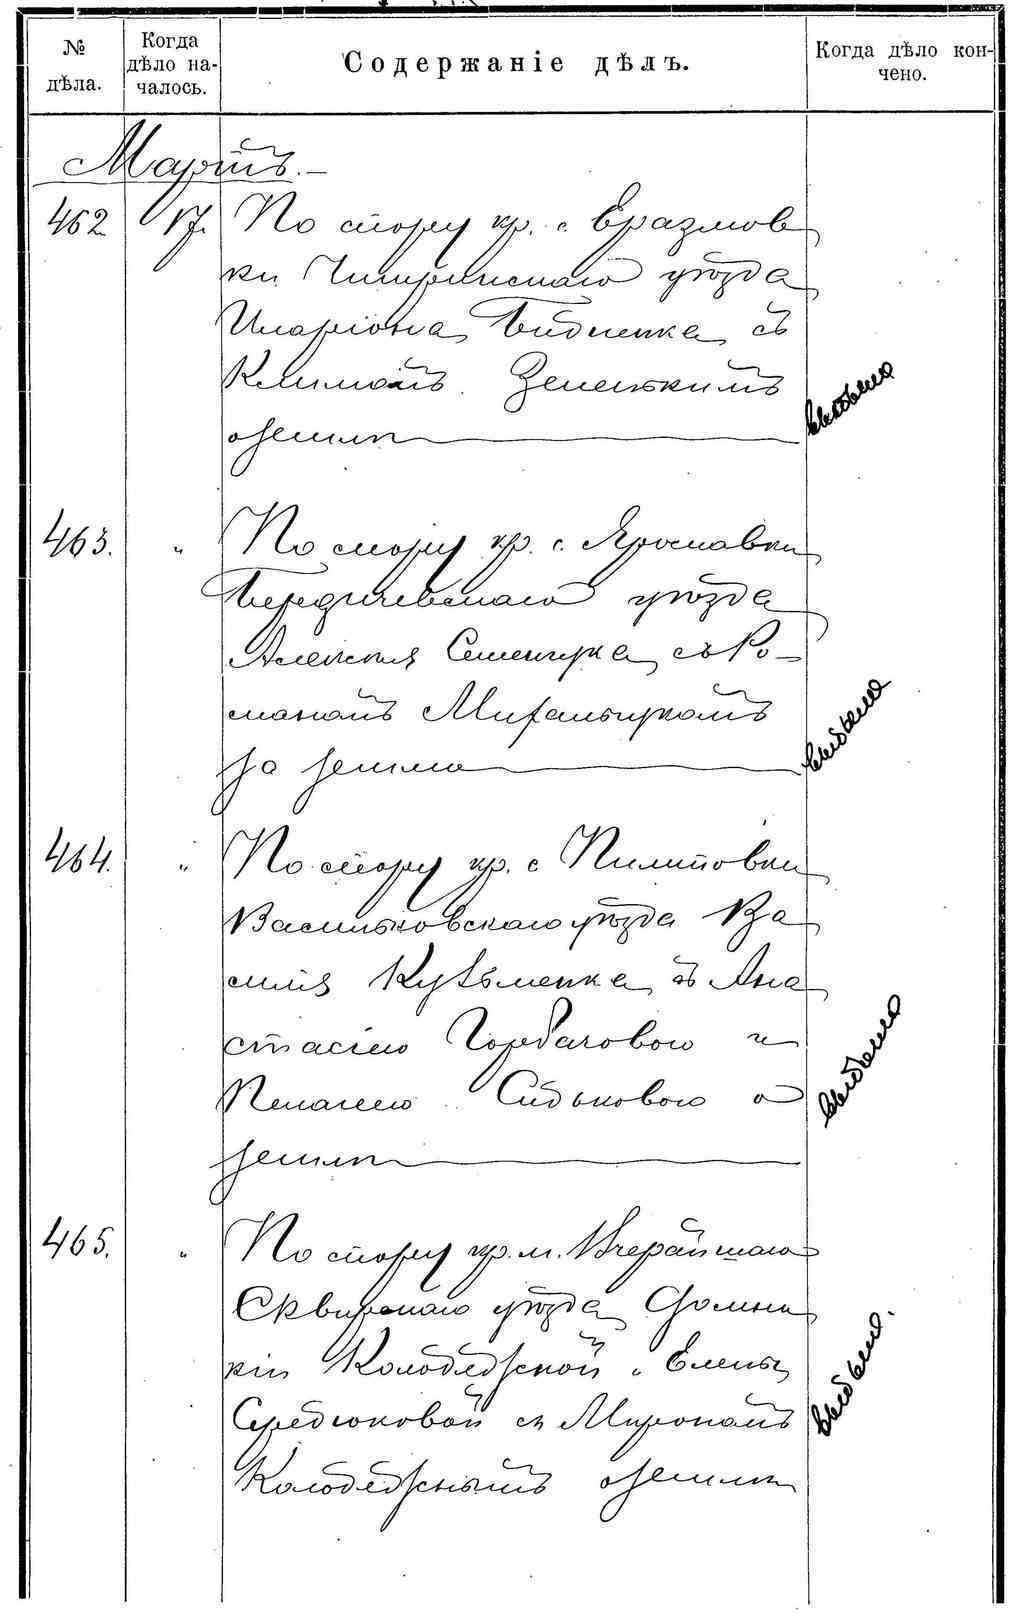 № дѣла.
Когда дѣло на-
чалось.
Содержаніе дѣлъ.
Когда дѣло кон-
чено.
Мартъ.
462 17. По спору кр. с. Еразмов
ки Чигиринскаго уѣзда
Иларіона Бидненка съ
Климомъ Зелезкимъ
о земли
463. „ По спору кр. с. Ярославки
Бердичевскаго уѣзда
Алексія Семенчука съ Ро-
маномъ Михальчукомъ
за землю
464. „ По спору кр. с. Пилиповки
Васильковскаго уѣзда Ва
силія Кузьменка съ Ана
стасіею Горбачовою и
Пелагею Сидьковою о
земли
465. „ По спору кр. м. Вчерайшаго
Сквирскаго уѣзда Домни
кіи Колодезской и Елены
Середюковой съ Мирономъ
Колодезснымъ о земли